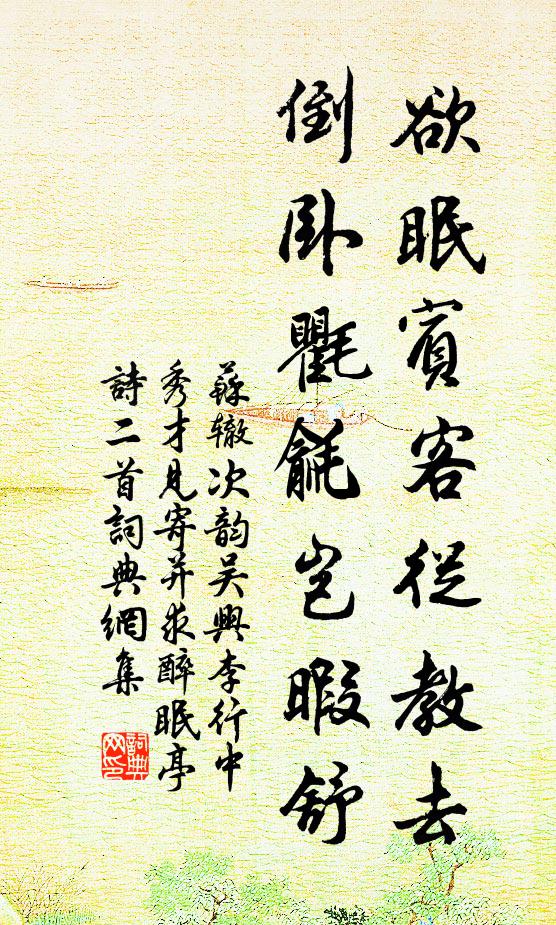 欲眠賓客從教去
倒卧氍毹豈暇舒
蘇辙次韵吴興李行中
秀才見寄并求醉眠亭
詩二首詞典網集
詞典网印